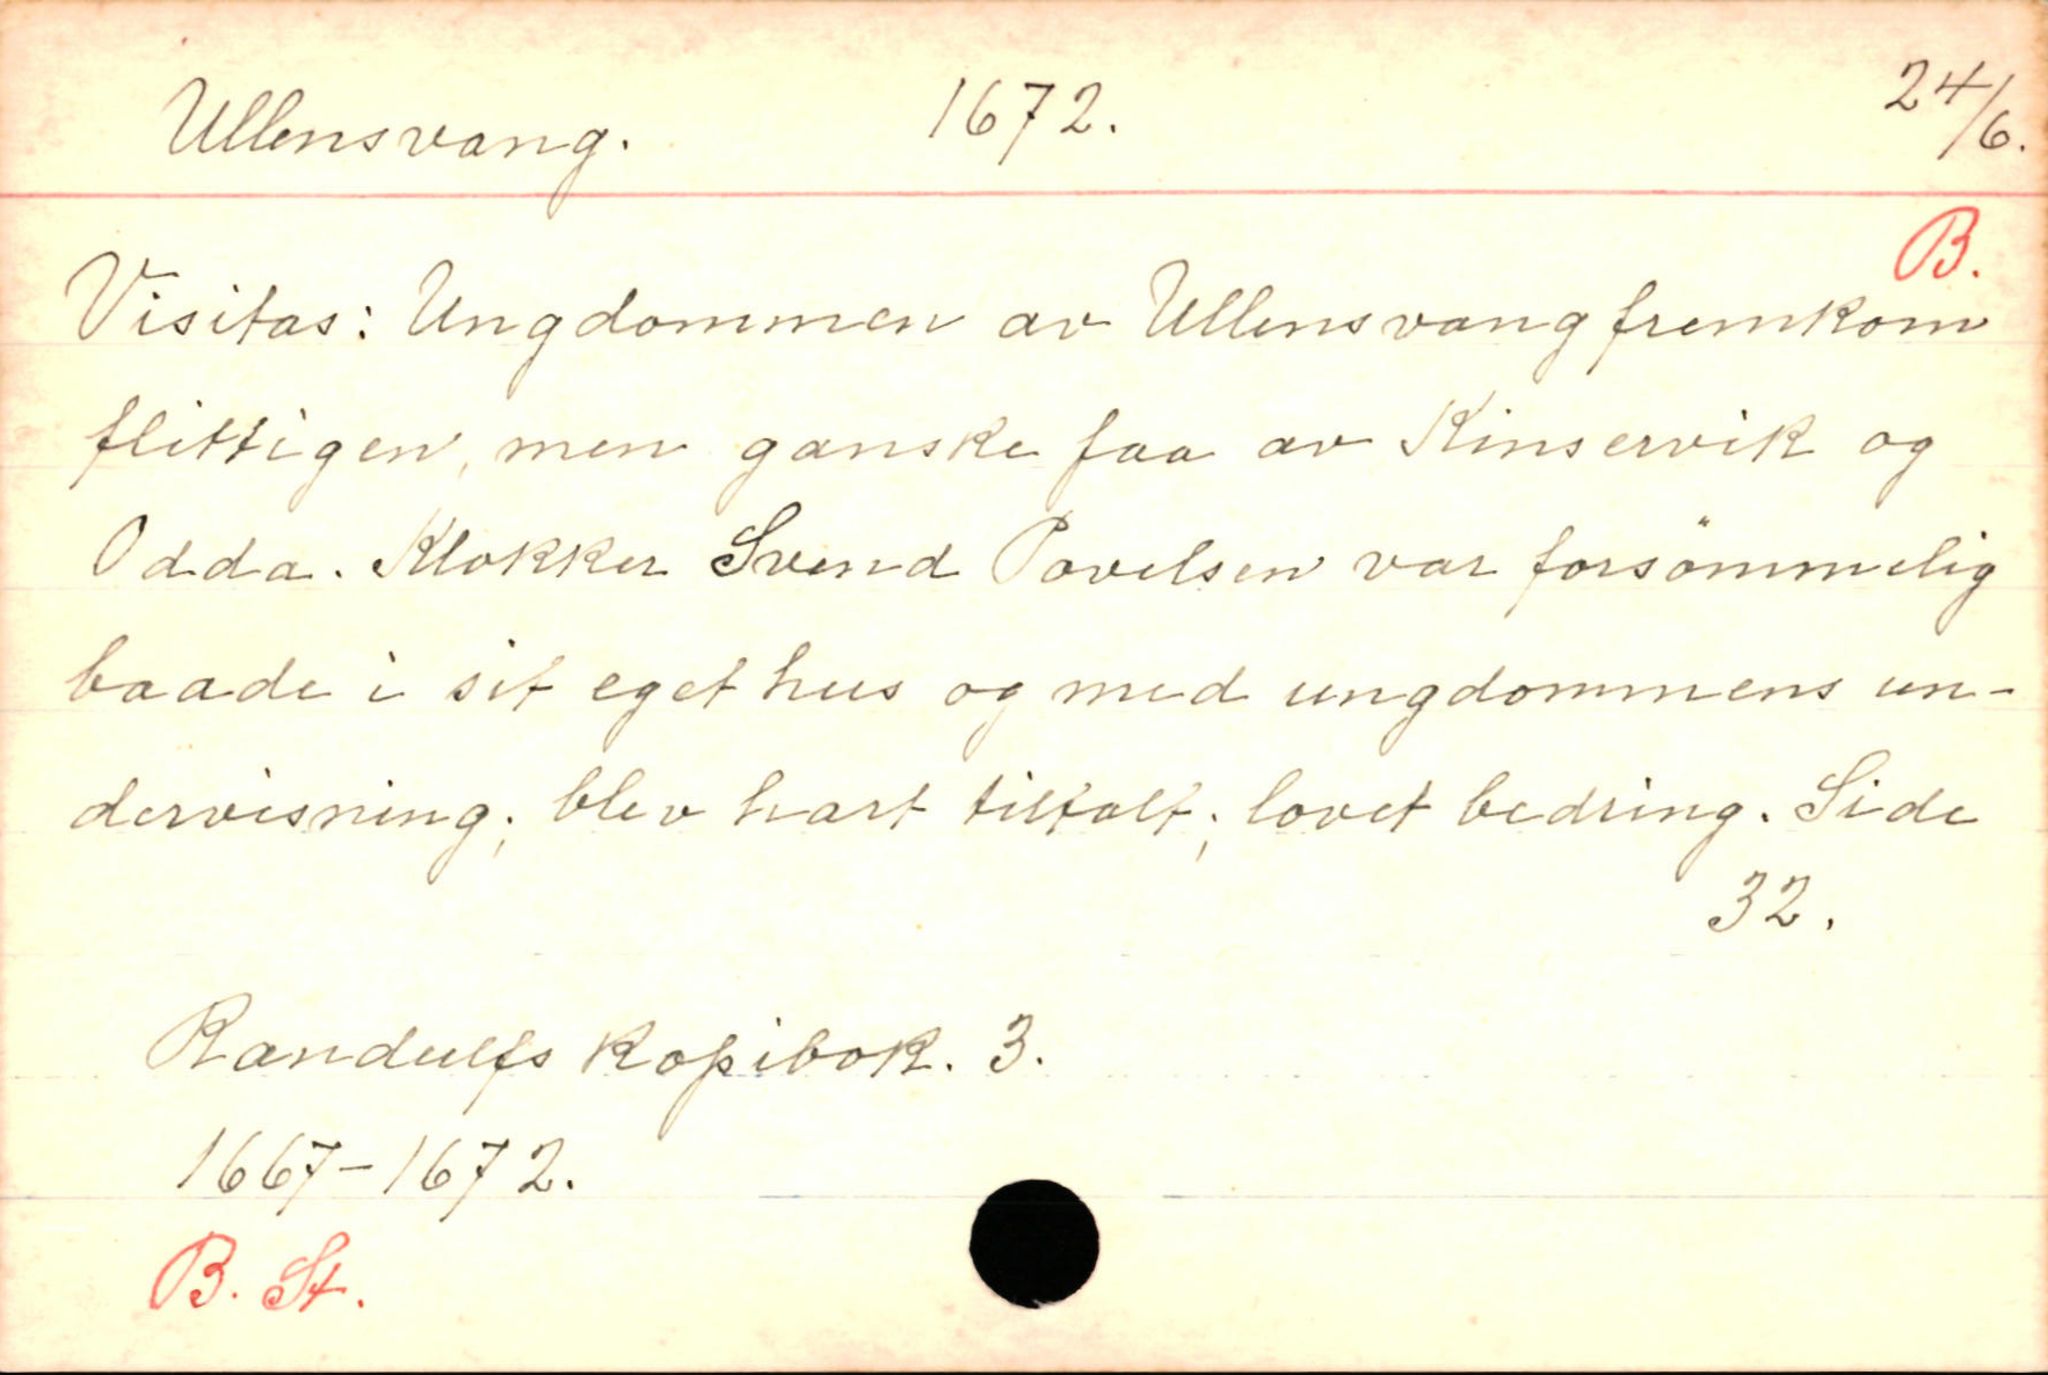 Ullensvang. 1672. 24/6.
B.
Visitas: Ungdommen av Ullensvang fremkom
flittigen, men ganske faa av Kinservik og
Odda. Klokker Svend Povelsen var forsömmelig
baade i sit eget hus og med ungdommens un-
dervisning; blev hart tiltalt; lovet bedring. Side
32.
Randulfs Kopibok. 3.
1667-1672.
B. St.